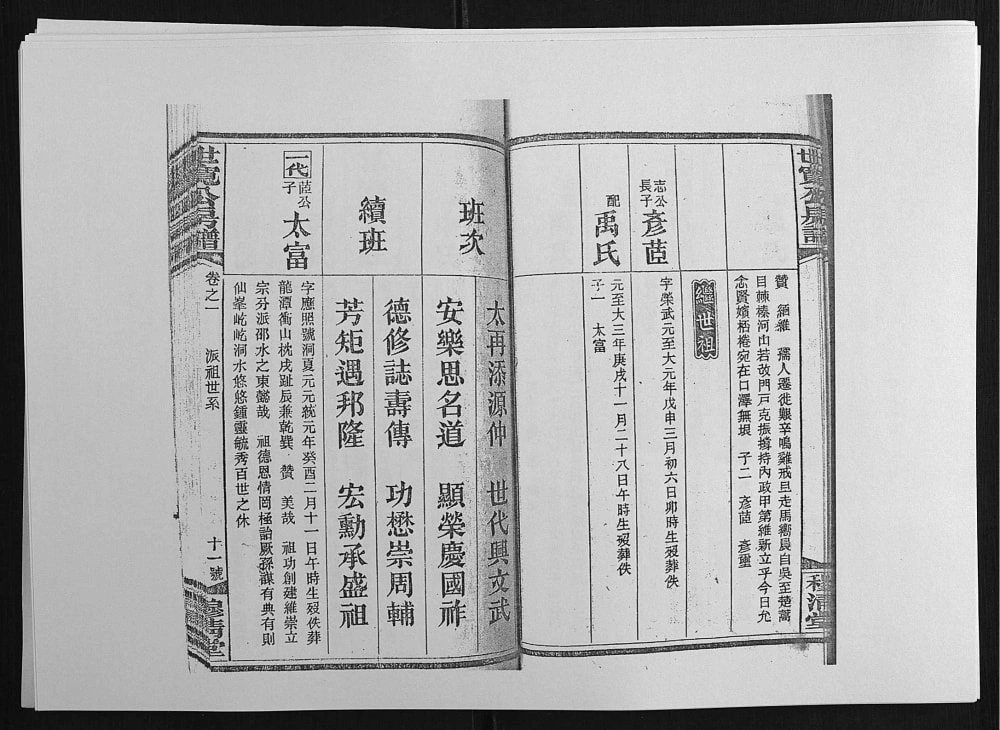 世寬公房譜
穆清堂
贊 絪維 孺人遷徙艱辛鳴雞戒旦走馬嚮晨自吳至楚蒿
目棘榛河山若故門戶克振據持內政甲第維新立乎今日允
念賢嬪桮棬宛在口澤無垠 子二 彥茝 彥璽
繼世祖
志公長子 彥茝
字榮武元至大元年戊申三月初六日卯時生歿葬佚
配 禹氏
元至大三年庚戌十一月二十八日午時生歿葬佚
子一 太富
班次
太再添源仲 世代興文武
安樂思名道 顯榮慶國祚
續班
德修誌壽傳 功懋崇周輔
芳矩遇邦隆 宏勳承盛祖
一代 茝公子 太富
字應照號洞夏元元統元年癸酉二月十一日午時生歿佚葬
龍潭衝山枕戌趾辰兼乾巽 贊 美哉 祖功創建維崇立
宗分派邵水之東懿哉 祖德恩情罔極詒厥孫謀有典有則
仙峯屹屹洞水悠悠鍾靈毓秀百世之休
世寬公房譜
卷之一
派祖世系
十一號
穆清堂